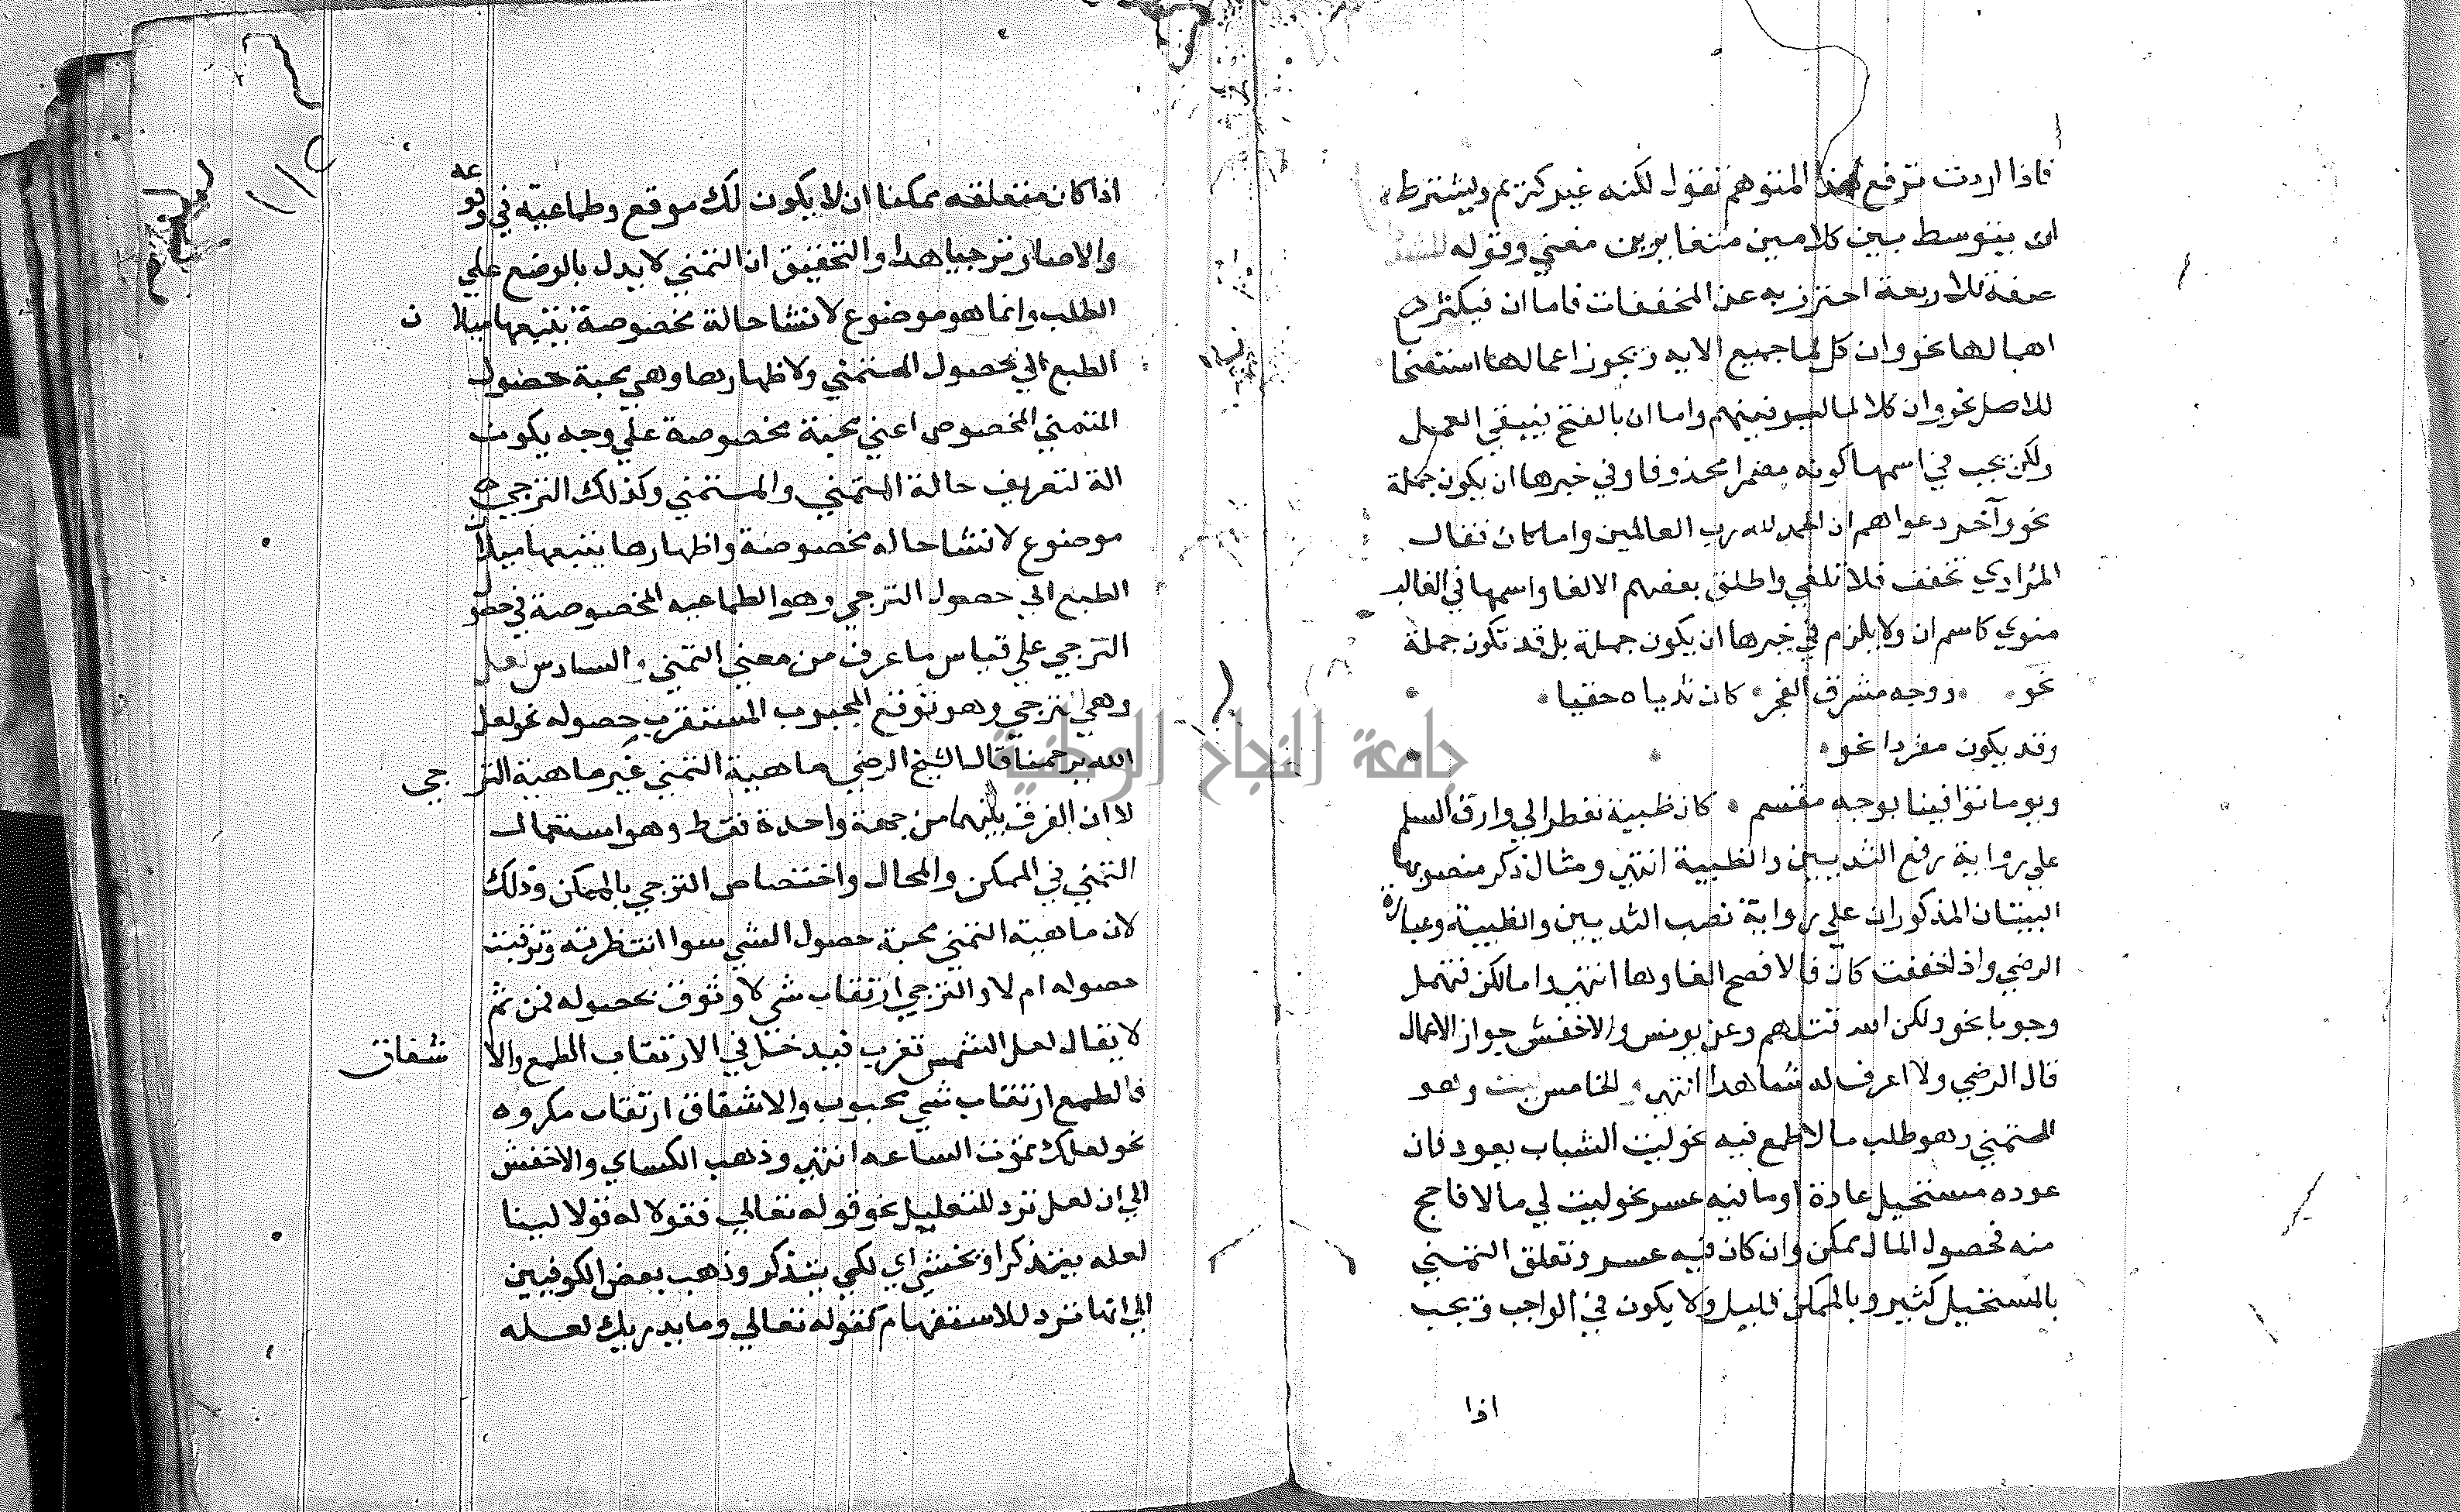 فاذا اردت ترفع هذا المتوهم تقول لكنه غير كريم ويشترط
ان يتوسط بين كلامين متغايرين معني وقوله للمشد
صفة للاربعة احترز به عن المخففات فاما ان فيكثر
اهمالها نحو وان كل لما جميع الايه ويجوز اعمالها استصحابا
للاصل نحو وان كلا لما ليوفينهم واما ان بالفتح فيبقي العمل
ولكن يجب في اسمها كونه مضمرا محذوفا وفي خبرها ان يكون جملة
نحو وآخر دعواهم ان الحمد لله رب العالمين واما كان فقال
المرادي تخفف فلا تلغي واطلق بعضهم الالغا واسمها في الغالب
منوي كاسم ان ولا يلزم في خبرها ان يكون جملة بل قد تكون جملة
نحو ووجه مشرق النحر كان ثدياه حقيا
وقد يكون مفردا نحو
ويوما توافينا بوجه مقسم كان ظبية تعطر الي وارق السلم
علي رواية رفع الثديين والظبية انتهي ومثال ذكر منصوبها
البيتان المذكوران علي رواية نصب الثديين والظبية وعبارة
الرضي واذا خففت كان فالافصح الغاوها انتهي واما لكن فتهمل
وجوبا نحو ولكن الله قتلهم وعن يونس والاخفش جواز الاعمال
قال الرضي ولا اعرف له شاهدا انتهي الخامس ليت وهو
للتمني وهو طلب ما لا طمع فيه نحو ليت الشباب يعود فان
عوده مستحيل عادة او ما فيه عسر نحو ليت لي مالا فاحج
منه فحصول المال ممكن وان كان فيه عسر وتعلق التمني
بالمستحيل كثير وبالممكن قليل ولا يكون في الواجب ويجب
اذا
١١٥
اذا كان متعلقه ممكنا ان لا يكون لك موقع وطماعية في وقوعه
والا صار ترجيا هذا والتحقيق ان التمني لا يدل بالوضع علي
الطلب وانما هو موضوع لانشا حالة مخصوصة يتبعها ميلان
الطبع الي حصول المتمني ولاظهارها وهي محبة حصول
المتمني المخصوص اعني محبة مخصوصة علي وجه يكون
الة لتعريف حالة المتمني والمستمني وكذلك الترجي
موضوع لانشا حاله مخصوصة واظهارها يتبعها ميلان
الطبع الي حصول الترجي وهو الطماعيه المخصوصة في حصول
الترجي علي قياس ما عرف من معني التمني السادس لعل
وهي للترجي وهو توقع المحبوب المستقرب حصوله نحو لعل
الله يرحمنا قال الشيخ الرضي ماهية التمني غير ماهية الترجي
لا ان الفرق بينهما من جهة واحدة فقط وهو استعمال
التمني في الممكن والمحال واختصاص الترجي بالممكن وذلك
لان ماهية التمني محبة حصول الشي سوا انتظرته وترقبت
حصوله ام لا والترجي ارتقاب شي لا وثوق بحصوله فمن ثم
لا يقال لعل الشمس تغرب فيدخل في الارتقاب الطمع والاشفاق
فالطمع ارتقاب شي محبوب والاشفاق ارتقاب مكروه
نحو لعلك تموت الساعه انتهي وذهب الكساي والاخفش
الي ان لعل ترد للتعليل نحو قوله تعالي فقولا له قولا لينا
لعله يتذكر او يخشي اي لكي يتذكر وذهب بعض الكوفيين
الي انها ترد للاستفهام كقوله تعالي وما يدريك لعله
جامعة النجاح الوطنية